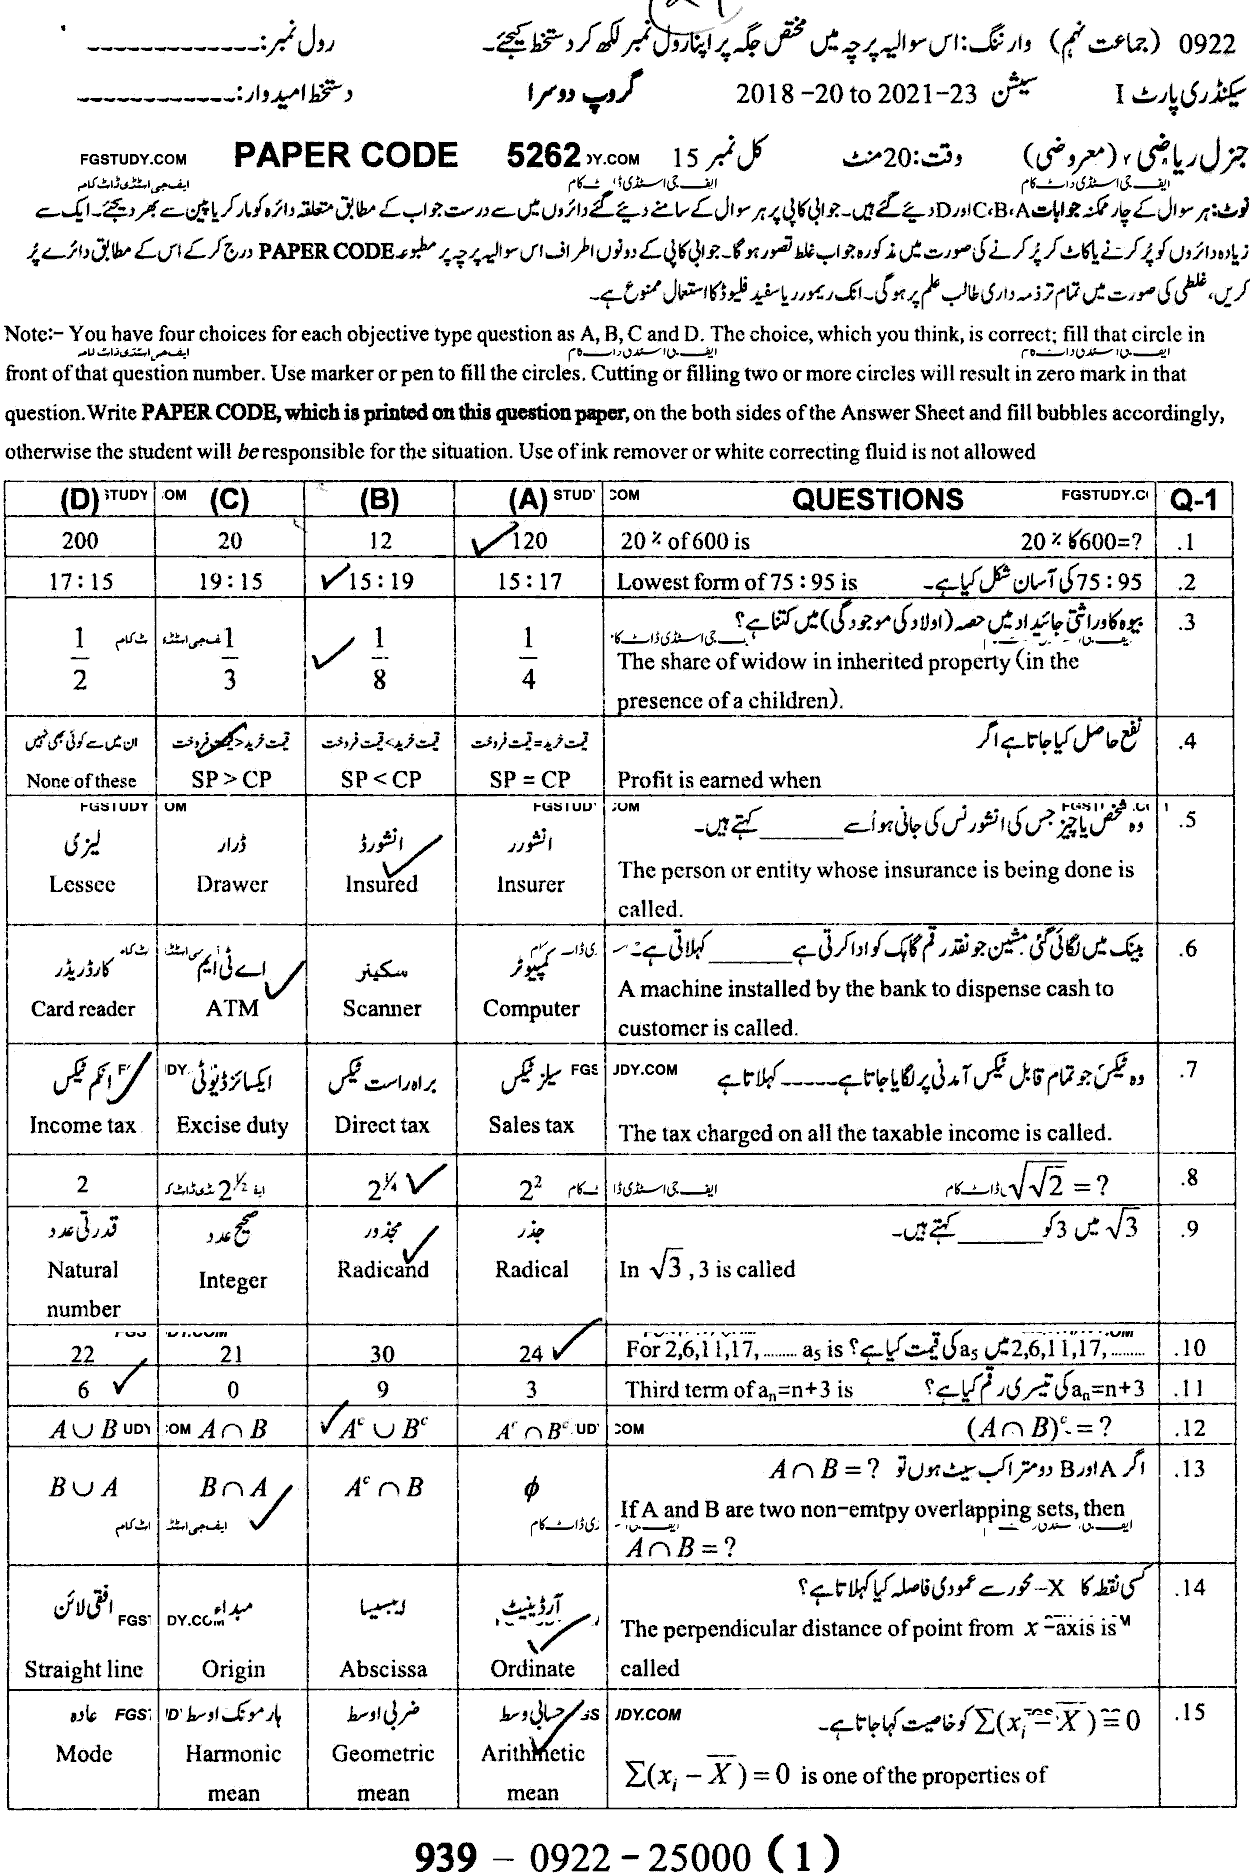 0922 (جماعت نہم) وارننگ: اس سوالیہ پرچہ میں مختص جگہ پر اپنا رول نمبر لکھ کر دستخط کیجئے۔ رول نمبر: -------------
سیکنڈری پارٹ I سیشن 2018 –20 to 2021–23 گروپ دوسرا دستخط امیدوار: ------------
جنرل ریاضی (معروضی) وقت: 20 منٹ کل نمبر 15 PAPER CODE 5262 FGSTUDY.COM
نوٹ: ہر سوال کے چار ممکنہ جوابات A، B، C اور D دیئے گئے ہیں۔ جوابی کاپی پر ہر سوال کے سامنے دیئے گئے دائروں میں سے درست جواب کے مطابق متعلقہ دائرہ کو مارکر یا پین سے بھر دیجئے۔ ایک سے
زیادہ دائروں کو پُر کرنے یا کاٹ کر پُر کرنے کی صورت میں مذکورہ جواب غلط تصور ہوگا۔ جوابی کاپی کے دونوں اطراف اس سوالیہ پرچہ پر مطبوعہ PAPER CODE درج کرکے اس کے مطابق دائرے پُر
کریں، غلطی کی صورت میں تمام تر ذمہ داری طالب علم پر ہوگی۔ انک ریمورر یا سفید فلیوڈ کا استعمال ممنوع ہے۔
Note:- You have four choices for each objective type question as A, B, C and D. The choice, which you think, is correct; fill that circle in
front of that question number. Use marker or pen to fill the circles. Cutting or filling two or more circles will result in zero mark in that
question. Write PAPER CODE, which is printed on this question paper, on the both sides of the Answer Sheet and fill bubbles accordingly,
otherwise the student will be responsible for the situation. Use of ink remover or white correcting fluid is not allowed
(D) (C) (B) (A) QUESTIONS Q-1
200 20 12 120 20 % of 600 is 20 % کا 600=? .1
17:15 19:15 15:19 15:17 Lowest form of 75 : 95 is 75 : 95 کی آسان شکل کیا ہے۔ .2
بیوہ کا وراثتی جائیداد میں حصہ (اولاد کی موجودگی) میں کتنا ہے؟ .3
1/2 1/3 1/8 1/4 The share of widow in inherited property (in the
presence of a children).
ان میں سے کوئی بھی نہیں قیمت خرید<قیمت فروخت قیمت خرید>قیمت فروخت قیمت خرید=قیمت فروخت نفع حاصل کیا جاتا ہے اگر .4
None of these SP > CP SP < CP SP = CP Profit is earned when
وہ شخص یا چیز جس کی انشورنس کی جانی ہو اُسے ______ کہتے ہیں۔ .5
لیزی ڈرار انشورڈ انشورر
Lessee Drawer Insured Insurer The person or entity whose insurance is being done is
called.
بینک میں لگائی گئی مشین جو نقد رقم گاہک کو ادا کرتی ہے ______ کہلاتی ہے۔ .6
کارڈ ریڈر اے ٹی ایم سکینر کمپیوٹر
Card reader ATM Scanner Computer A machine installed by the bank to dispense cash to
customer is called.
انکم ٹیکس ایکسائز ڈیوٹی براہ راست ٹیکس سیلز ٹیکس وہ ٹیکس جو تمام قابل ٹیکس آمدنی پر لگایا جاتا ہے----- کہلاتا ہے .7
Income tax Excise duty Direct tax Sales tax The tax charged on all the taxable income is called.
2 2^½ 2^¼ 2² √√2 = ? .8
قدرتی عدد صحیح عدد مجذور جذر √3 میں 3 کو ______ کہتے ہیں۔ .9
Natural number Integer Radicand Radical In √3 , 3 is called
22 21 30 24 For 2,6,11,17, ........ a₅ is 2,6,11,17, ........ میں a₅ کی قیمت کیا ہے؟ .10
6 0 9 3 Third term of aₙ=n+3 is aₙ=n+3 کی تیسری رقم کیا ہے؟ .11
A ∪ B A ∩ B Aᶜ ∪ Bᶜ Aᶜ ∩ Bᶜ (A ∩ B)ᶜ = ? .12
اگر A اور B دو متراکب سیٹ ہوں تو A ∩ B = ? .13
B ∪ A B ∩ A Aᶜ ∩ B ϕ If A and B are two non-emtpy overlapping sets, then
A ∩ B = ?
کسی نقطہ کا X– محور سے عمودی فاصلہ کیا کہلاتا ہے؟ .14
افقی لائن مبداء ایبسیسا آرڈینیٹ The perpendicular distance of point from x –axis is
Straight line Origin Abscissa Ordinate called
عادہ ہارمونک اوسط ضربی اوسط حسابی وسط Σ(xᵢ – X̄) = 0 کو خاصیت کہا جاتا ہے۔ .15
Mode Harmonic mean Geometric mean Arithmetic mean Σ(xᵢ – X̄) = 0 is one of the properties of
939 – 0922 – 25000 (1)